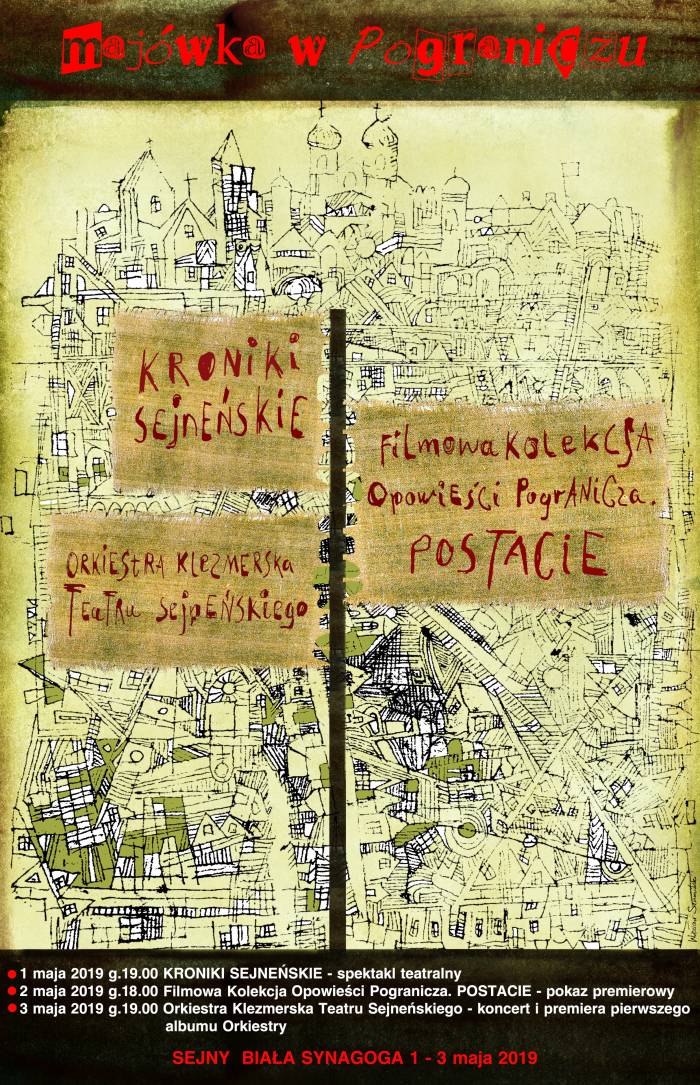 majówka w Pograniczu
KRONIKI
SEJNEŃSKIE
FilmowA KOLEKCJA
OpowiEŚci PogrANiCza.
POSTACIE
ORKIESTRA KLEZMERSKA
TEATRU SejnEŃSKiego
1 maja 2019 g.19.00 KRONIKI SEJNEŃSKIE - spektakl teatralny
2 maja 2019 g.18.00 Filmowa Kolekcja Opowieści Pogranicza. POSTACIE - pokaz premierowy
3 maja 2019 g.19.00 Orkiestra Klezmerska Teatru Sejneńskiego - koncert i premiera pierwszego
albumu Orkiestry
SEJNY BIAŁA SYNAGOGA 1 - 3 maja 2019